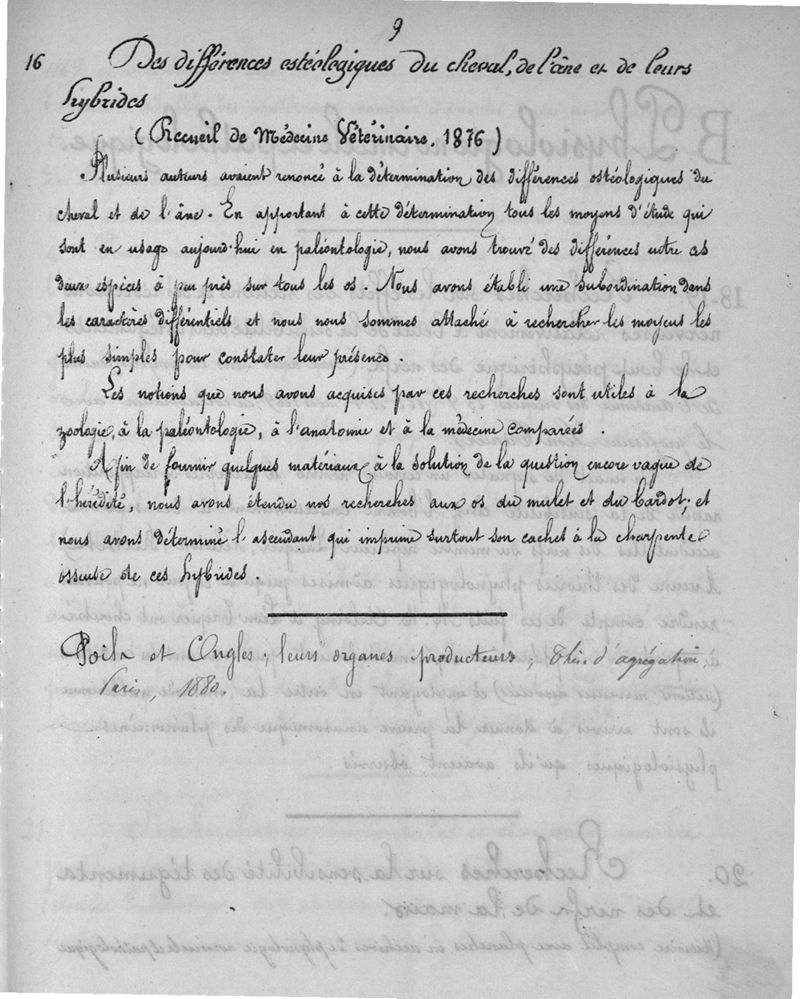 9
16 Des différences ostéologiques du cheval, de l'âne et de leurs
hybrides
(Recueil de Médecine Vétérinaire, 1876)
Plusieurs auteurs avaient renoncé à la détermination des différences ostéologiques du
cheval et de l'âne. En apportant à cette détermination tous les moyens d'étude qui
sont en usage aujourd'hui en paléontologie, nous avons trouvé des différences entre ces
deux espèces à peu près sur tous les os. Nous avons établi une subordination dans
les caractères différentiels et nous nous sommes attaché à rechercher les moyens les
plus simples pour constater leur présence.
Les notions que nous avons acquises par ces recherches sont utiles à la
zoologie, à la paléontologie, à l'anatomie et à la médecine comparées.
Afin de fournir quelques matériaux à la solution de la question encore vague de
l'hérédité, nous avons étendu nos recherches aux os du mulet et du bardot; et
nous avons déterminé l'ascendant qui imprime surtout son cachet à la charpente
osseuse de ces hybrides.
Poils et Ongles, leurs organes producteurs; Thèse d'agrégation,
Paris, 1880.